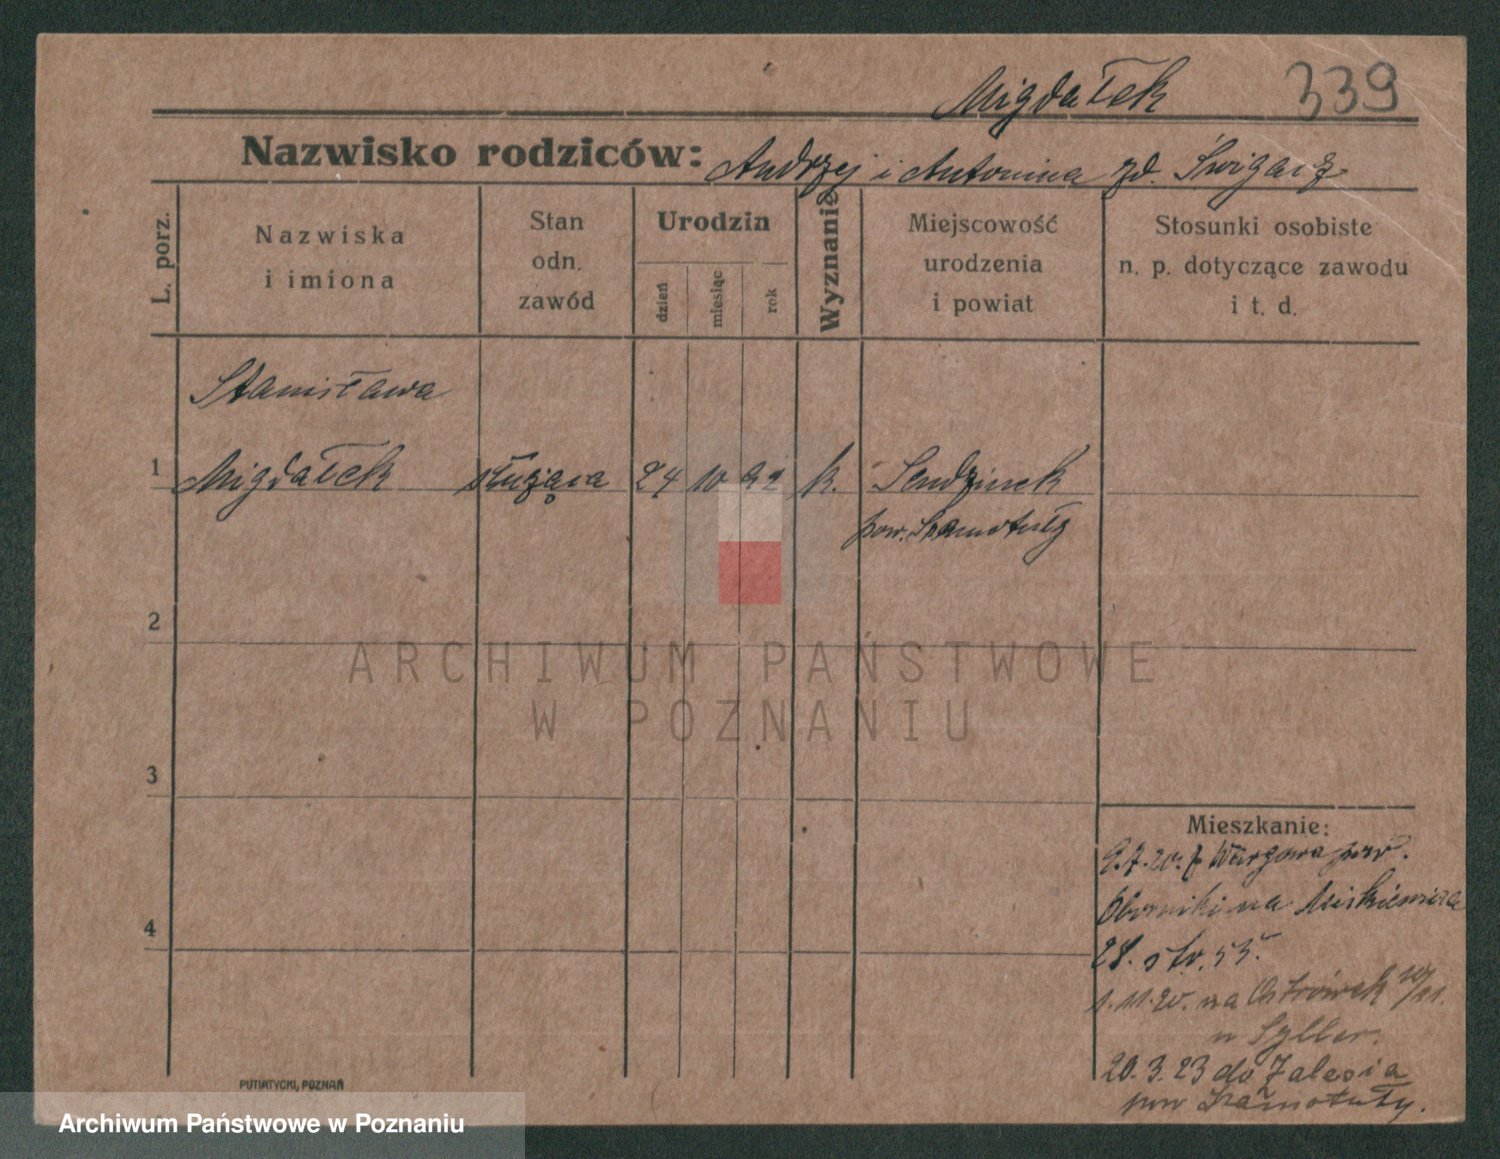 Migdałek 339
Nazwisko rodziców: Andrzej i Antonina zd. Świgarz
L. porz.
Nazwiska
i imiona
Stan
odn.
zawód
Urodzin
dzień
miesiąc
rok
Wyznanie
Miejscowość
urodzenia
i powiat
Stosunki osobiste
n. p. dotyczące zawodu
i t. d.
Stanisława
1 Migdałek służąca 24 10 92 k. Sendzinek
pow. Szamotuły
2
ARCHIWUM PAŃSTWOWE
W POZNANIU
3
Mieszkanie:
9.7.20. z Wargowa pow.
Oborniki na
4
28. str. 55.
1.11.20. na Ostrówek 10/11.
u Syller.
20.3.23 do Zalesia
pow Szamotuły.
PUTIATYCKI, POZNAŃ
Archiwum Państwowe w Poznaniu